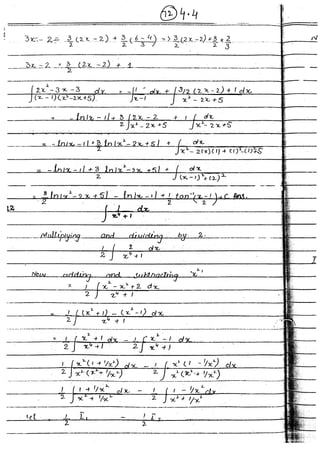 12 4.4
3x - 2 = 3/2 (2x - 2) + 3/2 (6 - 4 / 3) => 3/2 (2x - 2) + 3/2 × 2/3
3x - 2 = 3/2 (2x - 2) + 1
∫ 2x² - 3x - 3 / (x - 1)(x² - 2x + 5) dx = - ∫ 1 / x - 1 dx + ∫ 3/2 (2x - 2) + 1 dx / x² - 2x + 5
= - ln|x - 1| + 3/2 ∫ 2x - 2 / x² - 2x + 5 + ∫ dx / x² - 2x + 5
= - ln|x - 1| + 3/2 ln|x² - 2x + 5| + ∫ dx / x² - 2(x)(1) + (1)² - (1)² + 5
= - ln|x - 1| + 3/2 ln|x² - 2x + 5| + ∫ dx / (x - 1)² + (2)²
= 3/2 ln|x² - 2x + 5| - ln|x - 1| + 1/2 tan⁻¹(x - 1 / 2) + C Ans.
12 ∫ 1 / x⁴ + 1 dx
Multiplying and dividing by 2.
1/2 ∫ 2 / x⁴ + 1 dx
Now adding and subtracting "x²"
= 1/2 ∫ x² - x² + 2 dx / x⁴ + 1
1/2 ∫ (x² + 1) - (x² - 1) dx / x⁴ + 1
= 1/2 ∫ x² + 1 / x⁴ + 1 dx - 1/2 ∫ x² - 1 / x⁴ + 1 dx
1/2 ∫ x² (1 + 1/x²) / x² (x² + 1/x²) dx - 1/2 ∫ x² (1 - 1/x²) / x² (x² + 1/x²) dx
1/2 ∫ 1 + 1/x² / x² + 1/x² dx - 1/2 ∫ 1 - 1/x² / x² + 1/x² dx
let 1/2 I₁ - 1/2 I₂